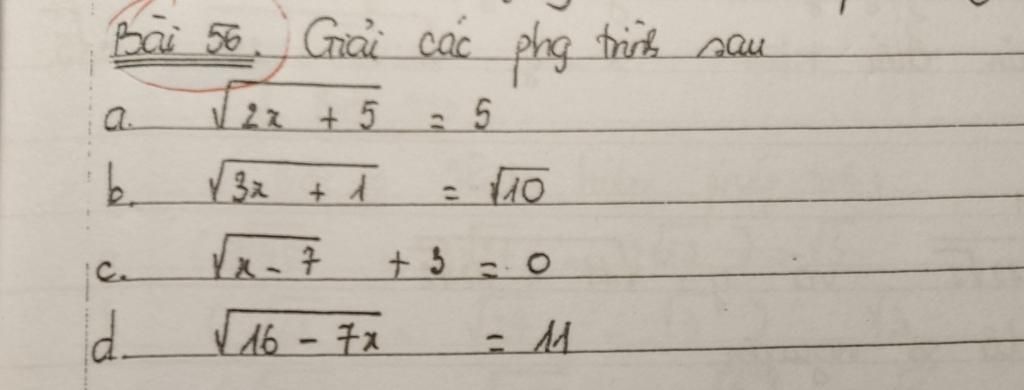 Bài 56. Giải các phg trình sau
a. √(2x + 5) = 5
b. √(3x + 1) = √10
c. √(x - 7) + 3 = 0
d. √(16 - 7x) = 11